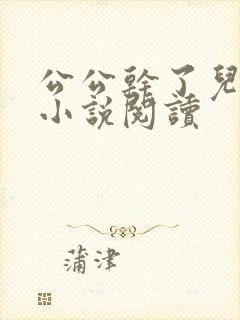 公公幹了兒
小説閱讀
蒲津